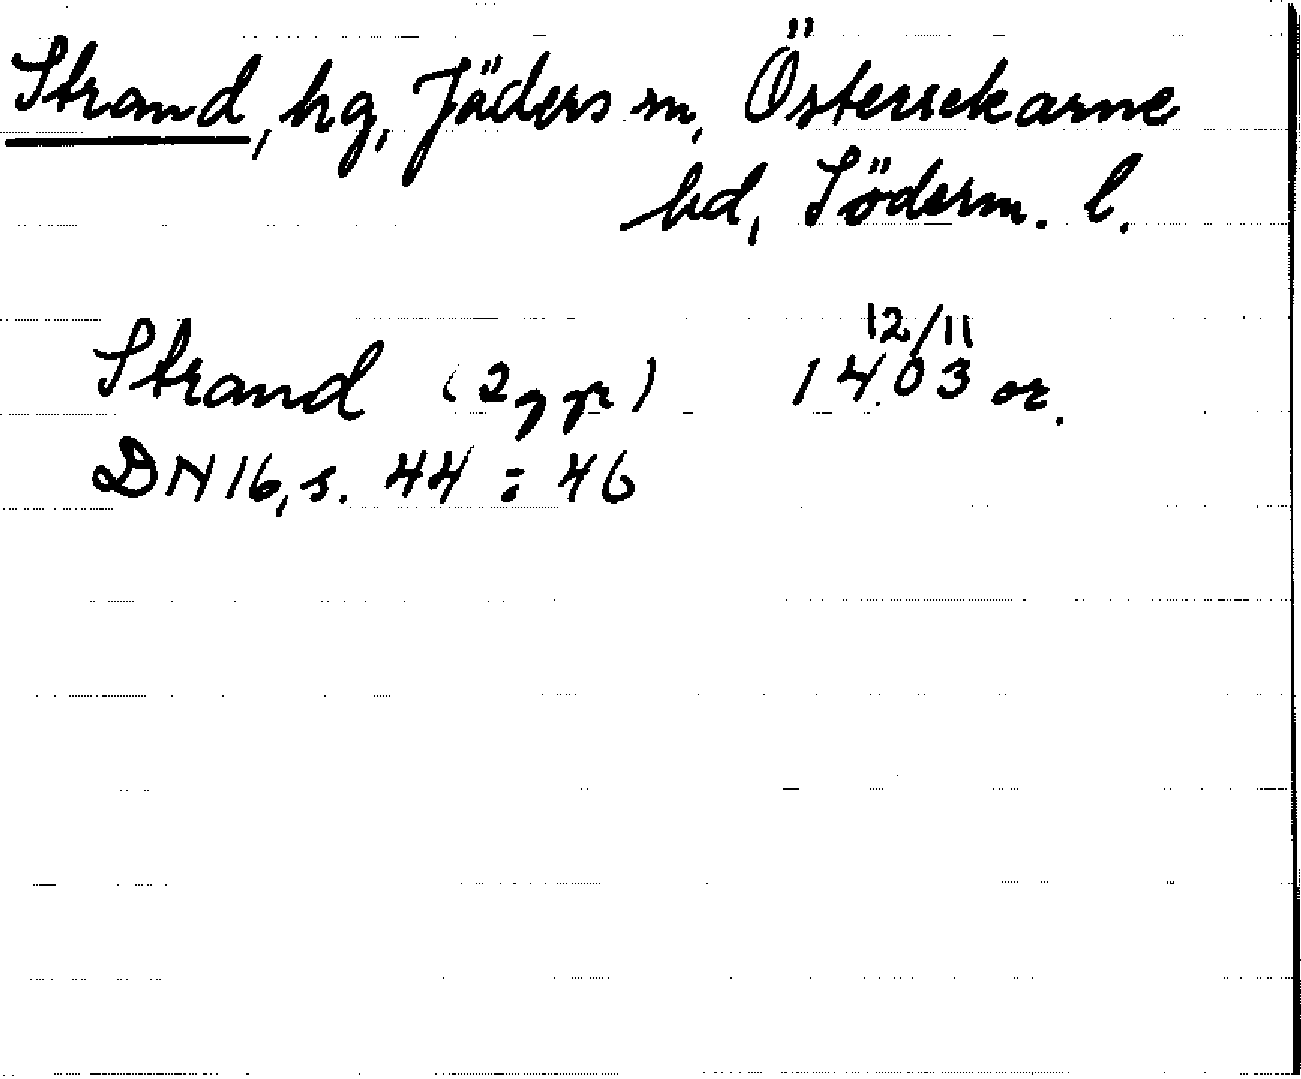 Strand, hg, Jäders sn, Österrekarne
hd, Söderm. l.
Strand (2 ggr) 12/11 1403 or.
DN 16, s. 44 : 46